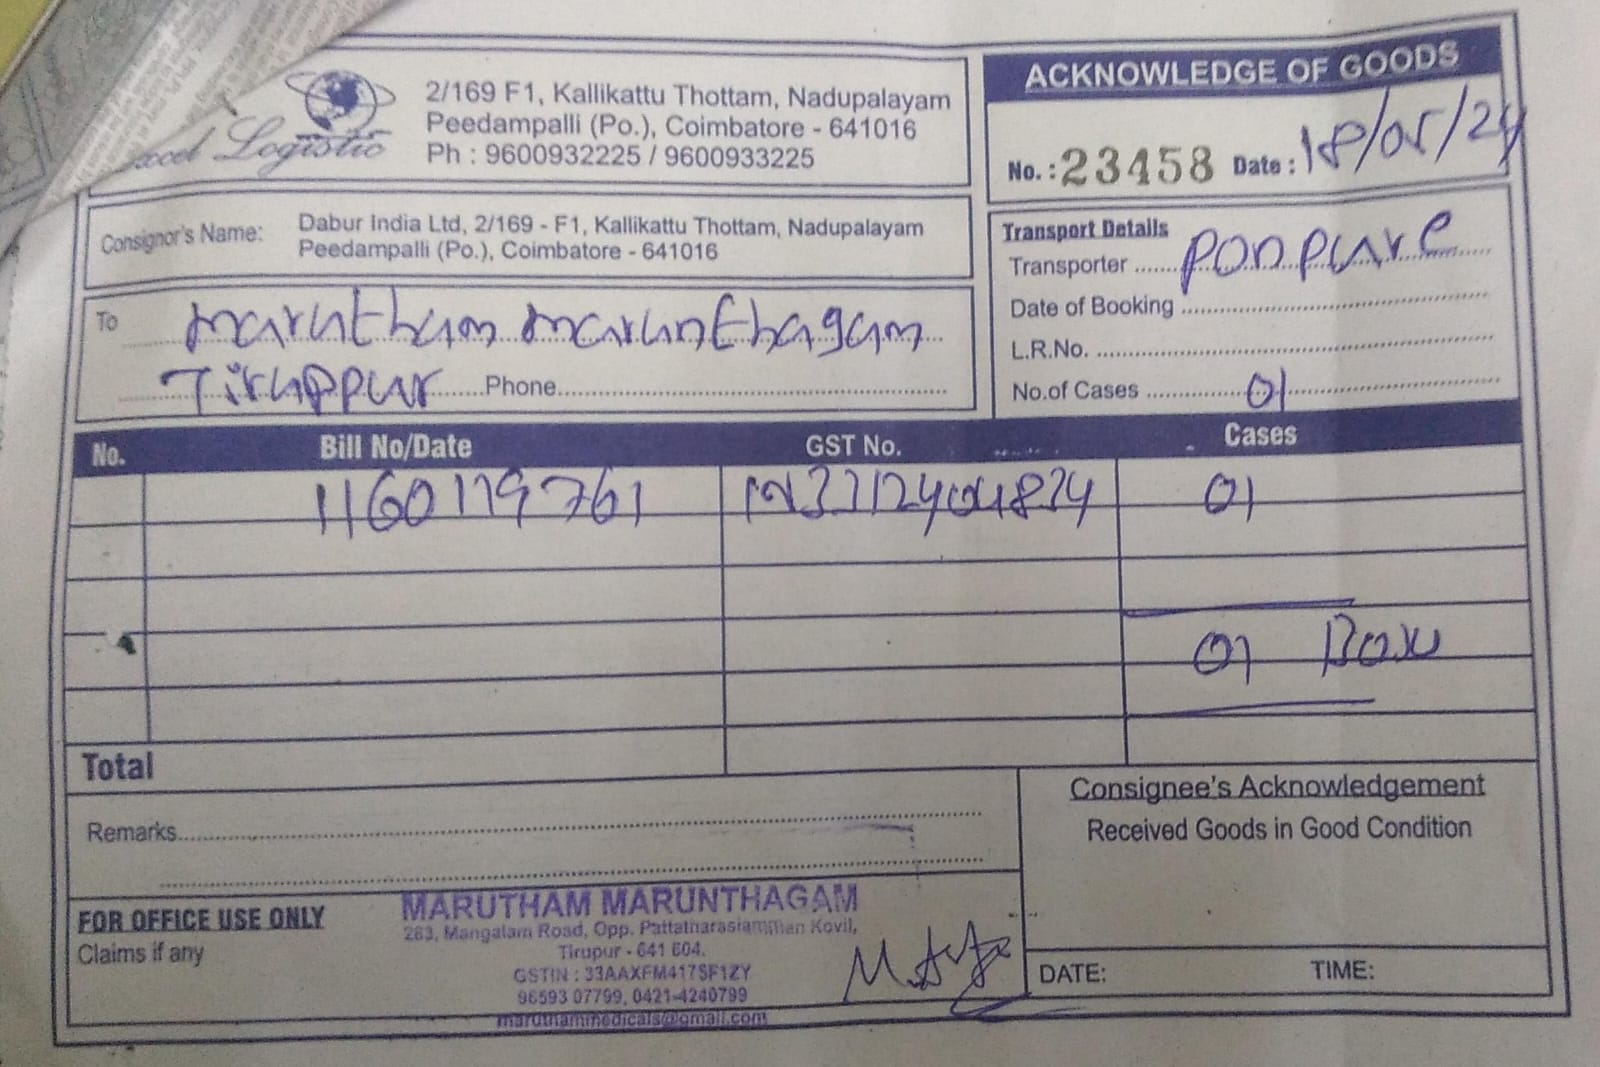 Logistic
2/169 F1, Kallikattu Thottam, Nadupalayam
Peedampalli (Po.), Coimbatore - 641016
Ph : 9600932225 / 9600933225
ACKNOWLEDGE OF GOODS
No. : 23458 Date : 18/05/24
Consignor's Name: Dabur India Ltd, 2/169 - F1, Kallikattu Thottam, Nadupalayam
Peedampalli (Po.), Coimbatore - 641016
Transport Details
Transporter ponpure
Date of Booking
L.R.No.
No.of Cases 01
To Marutham Marunthagam
Tiruppur Phone
No. Bill No/Date GST No. Cases
1160119761 01
01 Box
Total
Remarks
Consignee's Acknowledgement
Received Goods in Good Condition
FOR OFFICE USE ONLY
Claims if any
MARUTHAM MARUNTHAGAM
283, Mangalam Road, Opp. Pattatharasiamman Kovil,
Tirupur - 641 604.
GSTIN : 33AAXFM4175F1ZY
96593 07799, 0421-4240799
maruthammedicals@gmail.com
DATE: TIME: